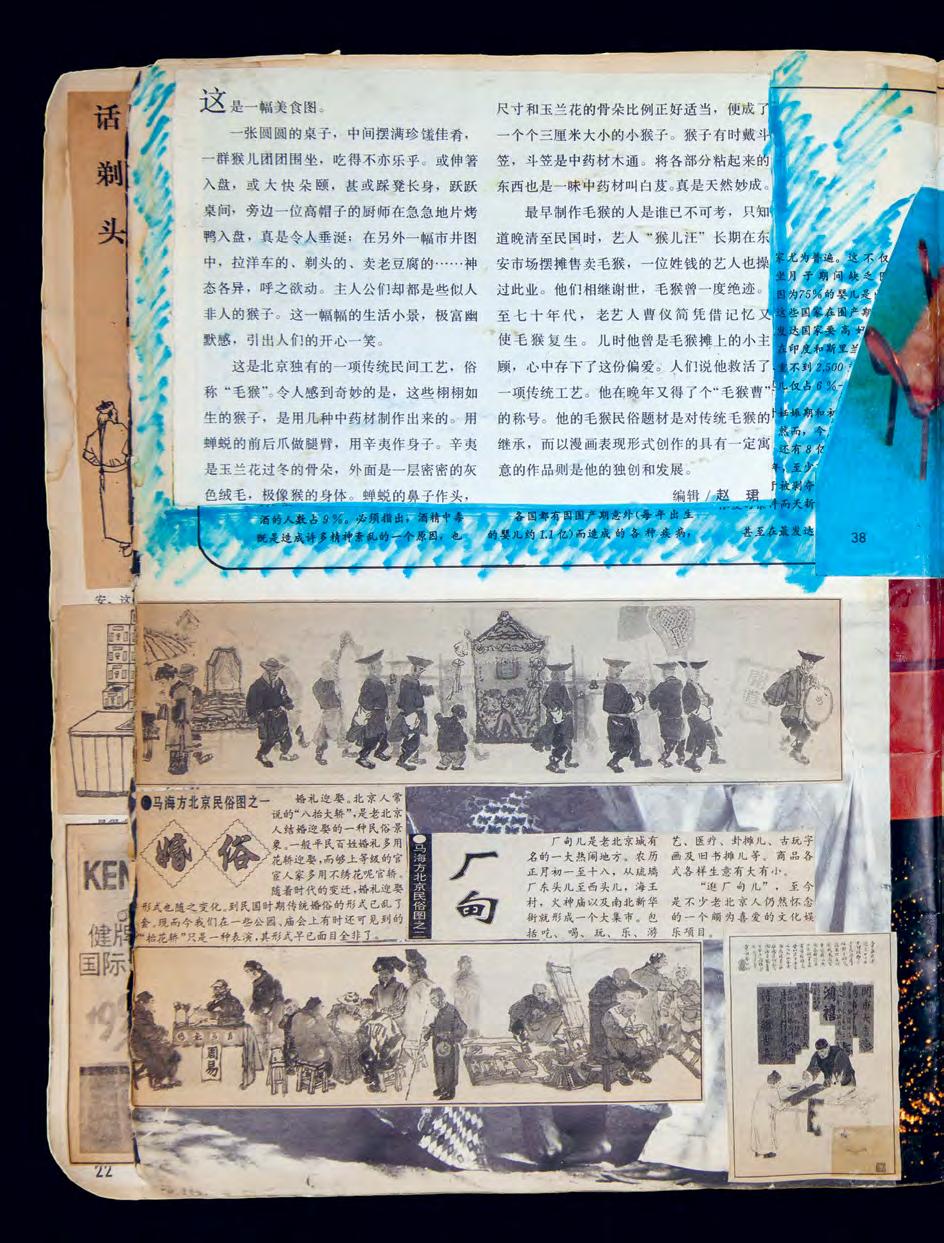 话
剃
头
这是一幅美食图。
一张圆圆的桌子，中间摆满珍馐佳肴，
一群猴儿团团围坐，吃得不亦乐乎。或伸箸
入盘，或大快朵颐，甚或踩凳长身，跃跃
桌间，旁边一位高帽子的厨师在急急地片烤
鸭入盘，真是令人垂涎；在另外一幅市井图
中，拉洋车的、剃头的、卖老豆腐的……神
态各异，呼之欲动。主人公们却都是些似人
非人的猴子。这一幅幅的生活小景，极富幽
默感，引出人们的开心一笑。
这是北京独有的一项传统民间工艺，俗
称“毛猴”。令人感到奇妙的是，这些栩栩如
生的猴子，是用几种中药材制作出来的。用
蝉蜕的前后爪做腿臂，用辛夷作身子。辛夷
是玉兰花过冬的骨朵，外面是一层密密的灰
色绒毛，极像猴的身体。蝉蜕的鼻子作头，
尺寸和玉兰花的骨朵比例正好适当，便成了
一个个三厘米大小的小猴子。猴子有时戴斗
笠，斗笠是中药材木通。将各部分粘起来的
东西也是一味中药材叫白芨。真是天然妙成。
最早制作毛猴的人是谁已不可考，只知
道晚清至民国时，艺人“猴儿汪”长期在东
安市场摆摊售卖毛猴，一位姓钱的艺人也操
过此业。他们相继谢世，毛猴曾一度绝迹。
至七十年代，老艺人曹仪简凭借记忆又
使毛猴复生。儿时他曾是毛猴摊上的小主
顾，心中存下了这份偏爱。人们说他救活了
一项传统工艺。他在晚年又得了个“毛猴曹”
的称号。他的毛猴民俗题材是对传统毛猴的
继承，而以漫画表现形式创作的具有一定寓
意的作品则是他的独创和发展。
编辑／赵 珺
家尤为普遍。这不仅
坐月子期间缺乏
因为75%的婴儿是
这些国家在围产期
发达国家要高
在印度和斯里兰
重不到2,500
儿仅占6%
妊娠期和
然而，今
还有8亿
年，至少
于被剥夺
件而夭折
酒的人数占9%。必须指出，酒精中毒
既是造成许多精神紊乱的一个原因，也
各国都有因围产期意外(每年出生
的婴儿约1.1亿)而造成的各种疾病，
甚至在最发达
38
安，这
●马海方北京民俗图之一
婚俗
婚礼迎娶。北京人常
说的“八抬大轿”，是老北京
人结婚迎娶的一种民俗景
象。一般平民百姓婚礼多用
花轿迎娶，而够上等级的官
宦人家多用不绣花呢官轿。
随着时代的变迁，婚礼迎娶
形式也随之变化。到民国时期传统婚俗的形式已乱了
套。现而今我们在一些公园、庙会上有时还可见到的
“抬花轿”只是一种表演，其形式早已面目全非了。
●马海方北京民俗图之二
厂甸
厂甸儿是老北京城有
名的一大热闹地方。农历
正月初一至十八，从琉璃
厂东头儿至西头儿，海王
村，火神庙以及南北新华
街就形成一个大集市。包
括吃、喝、玩、乐、游
艺、医疗、卦摊儿、古玩字
画及旧书摊儿等。商品各
式各样生意有大有小。
“逛厂甸儿”，至今
是不少老北京人仍然怀念
的一个颇为喜爱的文化娱
乐项目。
KEN
健牌
国际
199
周易
鸿禧
22